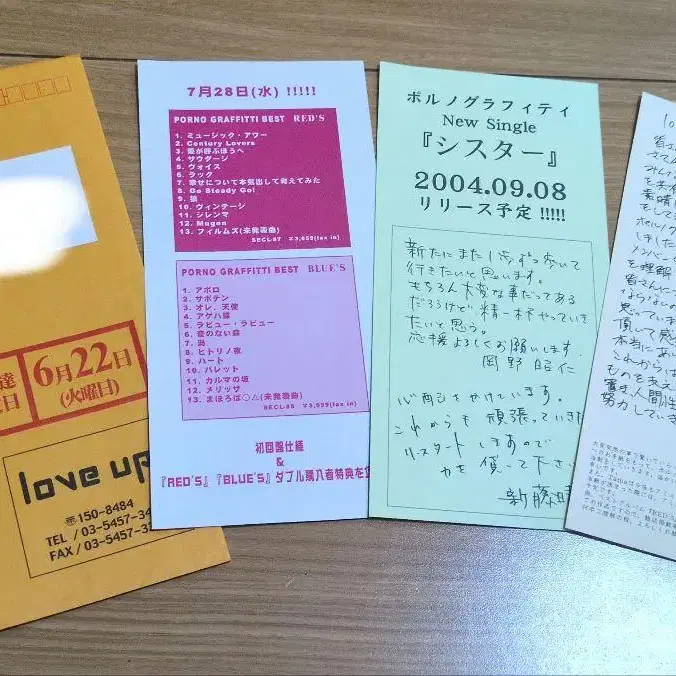 達
日
6月22日
(火曜日)
love up
〒150-8484
TEL / 03-5457-3
FAX / 03-5457-3
7月28日(水) !!!!!
PORNO GRAFFITTI BEST RED'S
1. ミュージック・アワー
2. Century Lovers
3. 愛が呼ぶほうへ
4. サウダージ
5. ヴォイス
6. ラック
7. 幸せについて本気出して考えてみた
8. Go Steady Go!
9. 狼
10. ヴィンテージ
11. シレンマ
12. Mugen
13. フィルムズ(未発表曲)
SECL-87 ¥3,059(tax in)
PORNO GRAFFITTI BEST BLUE'S
1. アポロ
2. サボテン
3. オレ、天使
4. アゲハ蝶
5. ラビュー・ラビュー
6. 音のない森
7. 渦
8. ヒトリノ夜
9. ハート
10. パレット
11. カルマの坂
12. メリッサ
13. まほろば○△(未発表曲)
SECL-88 ¥3,059(tax in)
初回盤仕様
&
『RED'S』『BLUE'S』ダブル購入者特典を
ポルノグラフィティ
New Single
『シスター』
2004.09.08
リリース予定 !!!!!
新たにまた1歩ずつ歩いて
行きたいと思います。
もちろん大変な事だってある
だろうけど精一杯やっていき
たいと思う。
応援よろしくお願いします。
岡野昭仁
心配をかけています。
これからも頑張っていきた
リスタートしますので
力を貸して下さ
新藤晴
を理解
皆さんに
思ってい
頂して感
本当にあ
これからは
ものを支え
人間性
努力してい